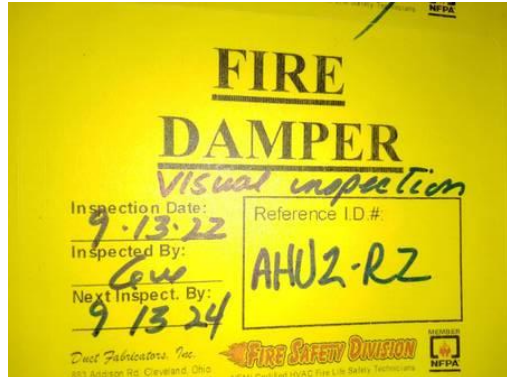 Life Safety Technicians
NFPA
FIRE
DAMPER
Visual inspection
Inspection Date:
9·13·22
Inspected By:
Next Inspect. By:
9 13 24
Reference I.D.#:
AHU2-R2
Duct Fabricators, Inc.
883 Addison Rd. Cleveland, Ohio
FIRE SAFETY DIVISION
Certified HVAC Fire Life Safety Technicians
MEMBER
NFPA